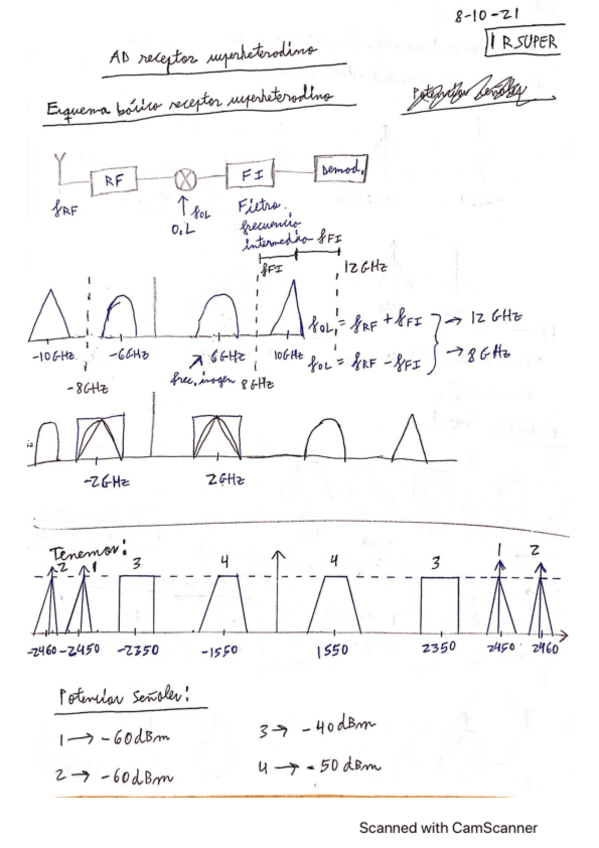 8-10-21
1 RSUPER
AD receptor superheterodino
Esquema básico receptor superheterodino
Potencias Señales
RF
FI
Demod.
fRF
fOL
O.L
Filtro
frecuencia
intermedia
fFI
fFI
12GHz
fOL = fRF + fFI → 12 GHz
fOL = fRF - fFI → 8 GHz
-10GHz -6GHz 6GHz 10GHz
-8GHz frec. imagen 8GHz
-2GHz 2GHz
Tenemos:
2 1 3 4 4 3 1 2
-2460 -2450 -2350 -1550 1550 2350 2450 2460
Potencias Señales:
1 → -60dBm 3 → -40dBm
2 → -60dBm 4 → -50dBm
Scanned with CamScanner